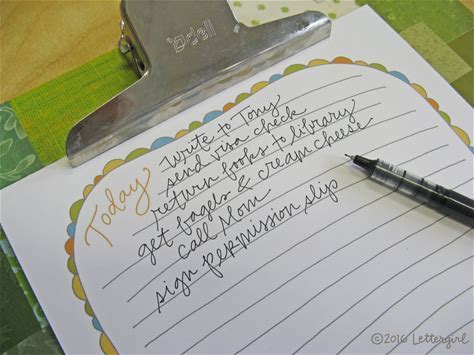 Odell
Today
Write to Tony
send visa check
return books to library
get bagels & cream cheese
call Mom
sign permission slip
©2016 Lettergirl